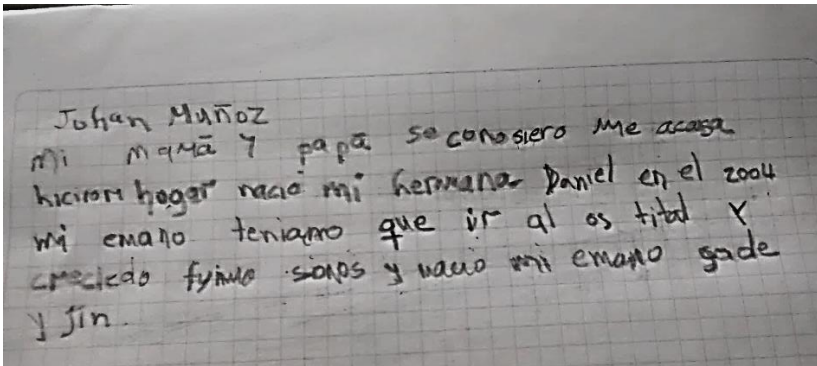 Johan Muñoz
mi mamá y papá se conosiero me acasa
hiciron hogar nacio mi hermana Daniel en el 2004
mi emano teniamo que ir al os tital y
creciedo fyimo sonos y nacio mi emano gade
y jin.